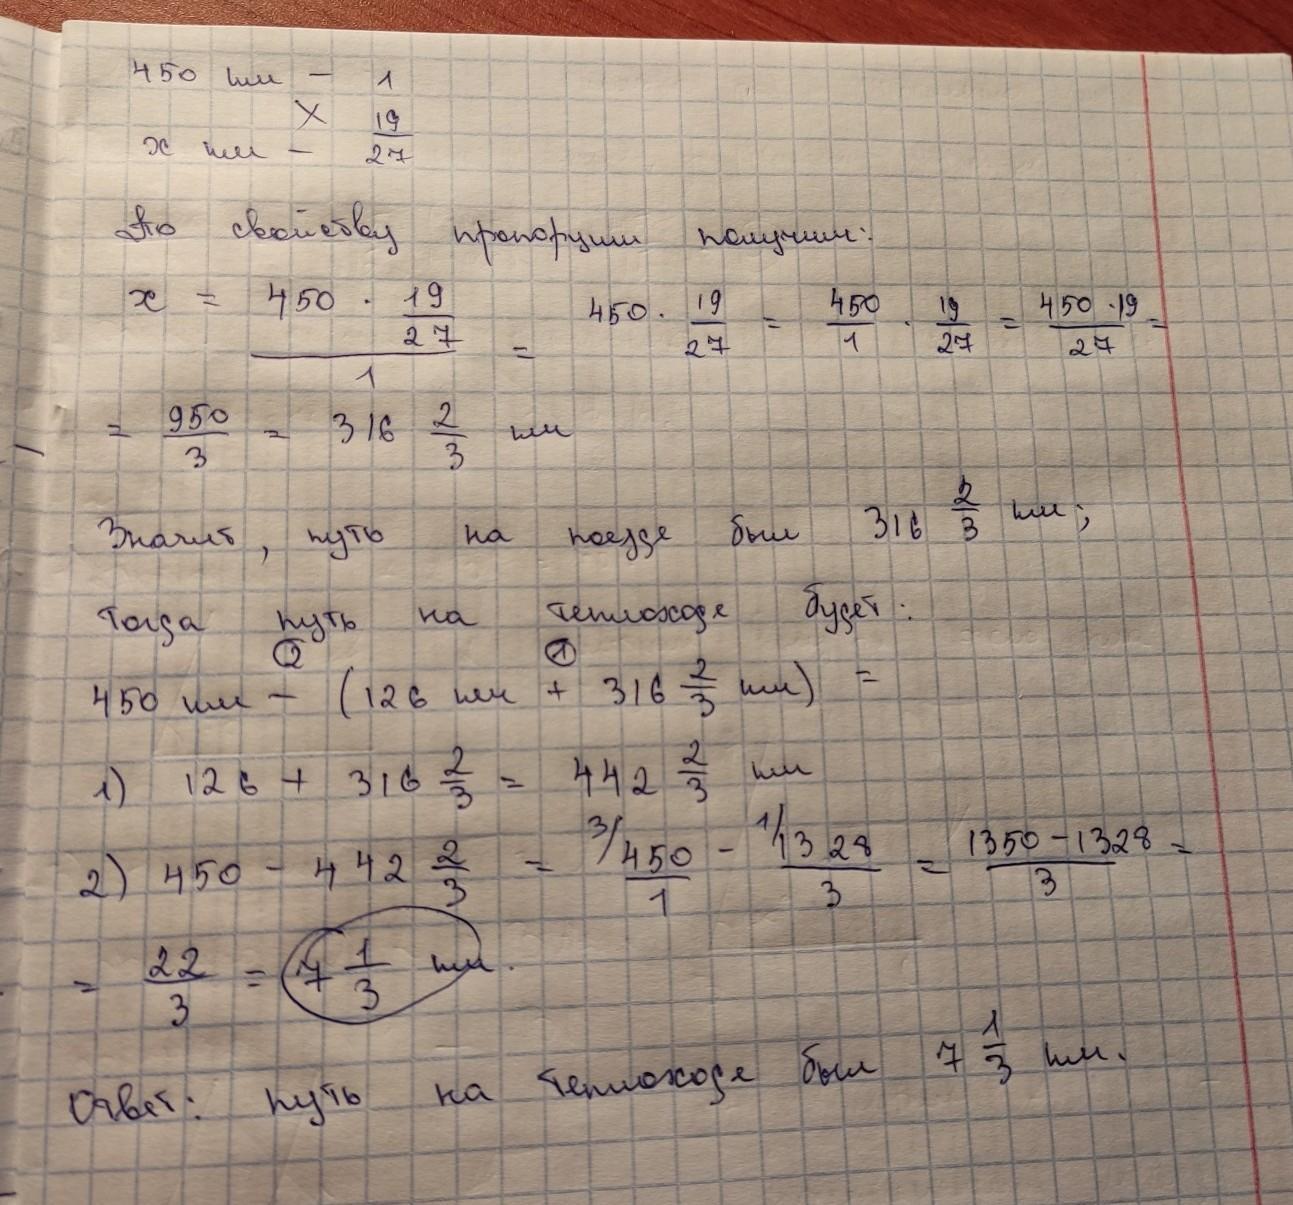 450 км - 1
x км - 19/27
По свойству пропорции получим:
x = (450 · 19/27)/1 = 450 · 19/27 = 450/1 · 19/27 = (450 · 19)/27 =
= 950/3 = 316 2/3 км
Значит, путь на поезде был 316 2/3 км;
тогда путь на теплоходе будет:
② ①
450 км - (126 км + 316 2/3 км) =
1) 126 + 316 2/3 = 442 2/3 км
2) 450 - 442 2/3 = 3/ 450/1 - 1/ 1328/3 = (1350 - 1328)/3 =
= 22/3 = 7 1/3 км.
Ответ: путь на теплоходе был 7 1/3 км.